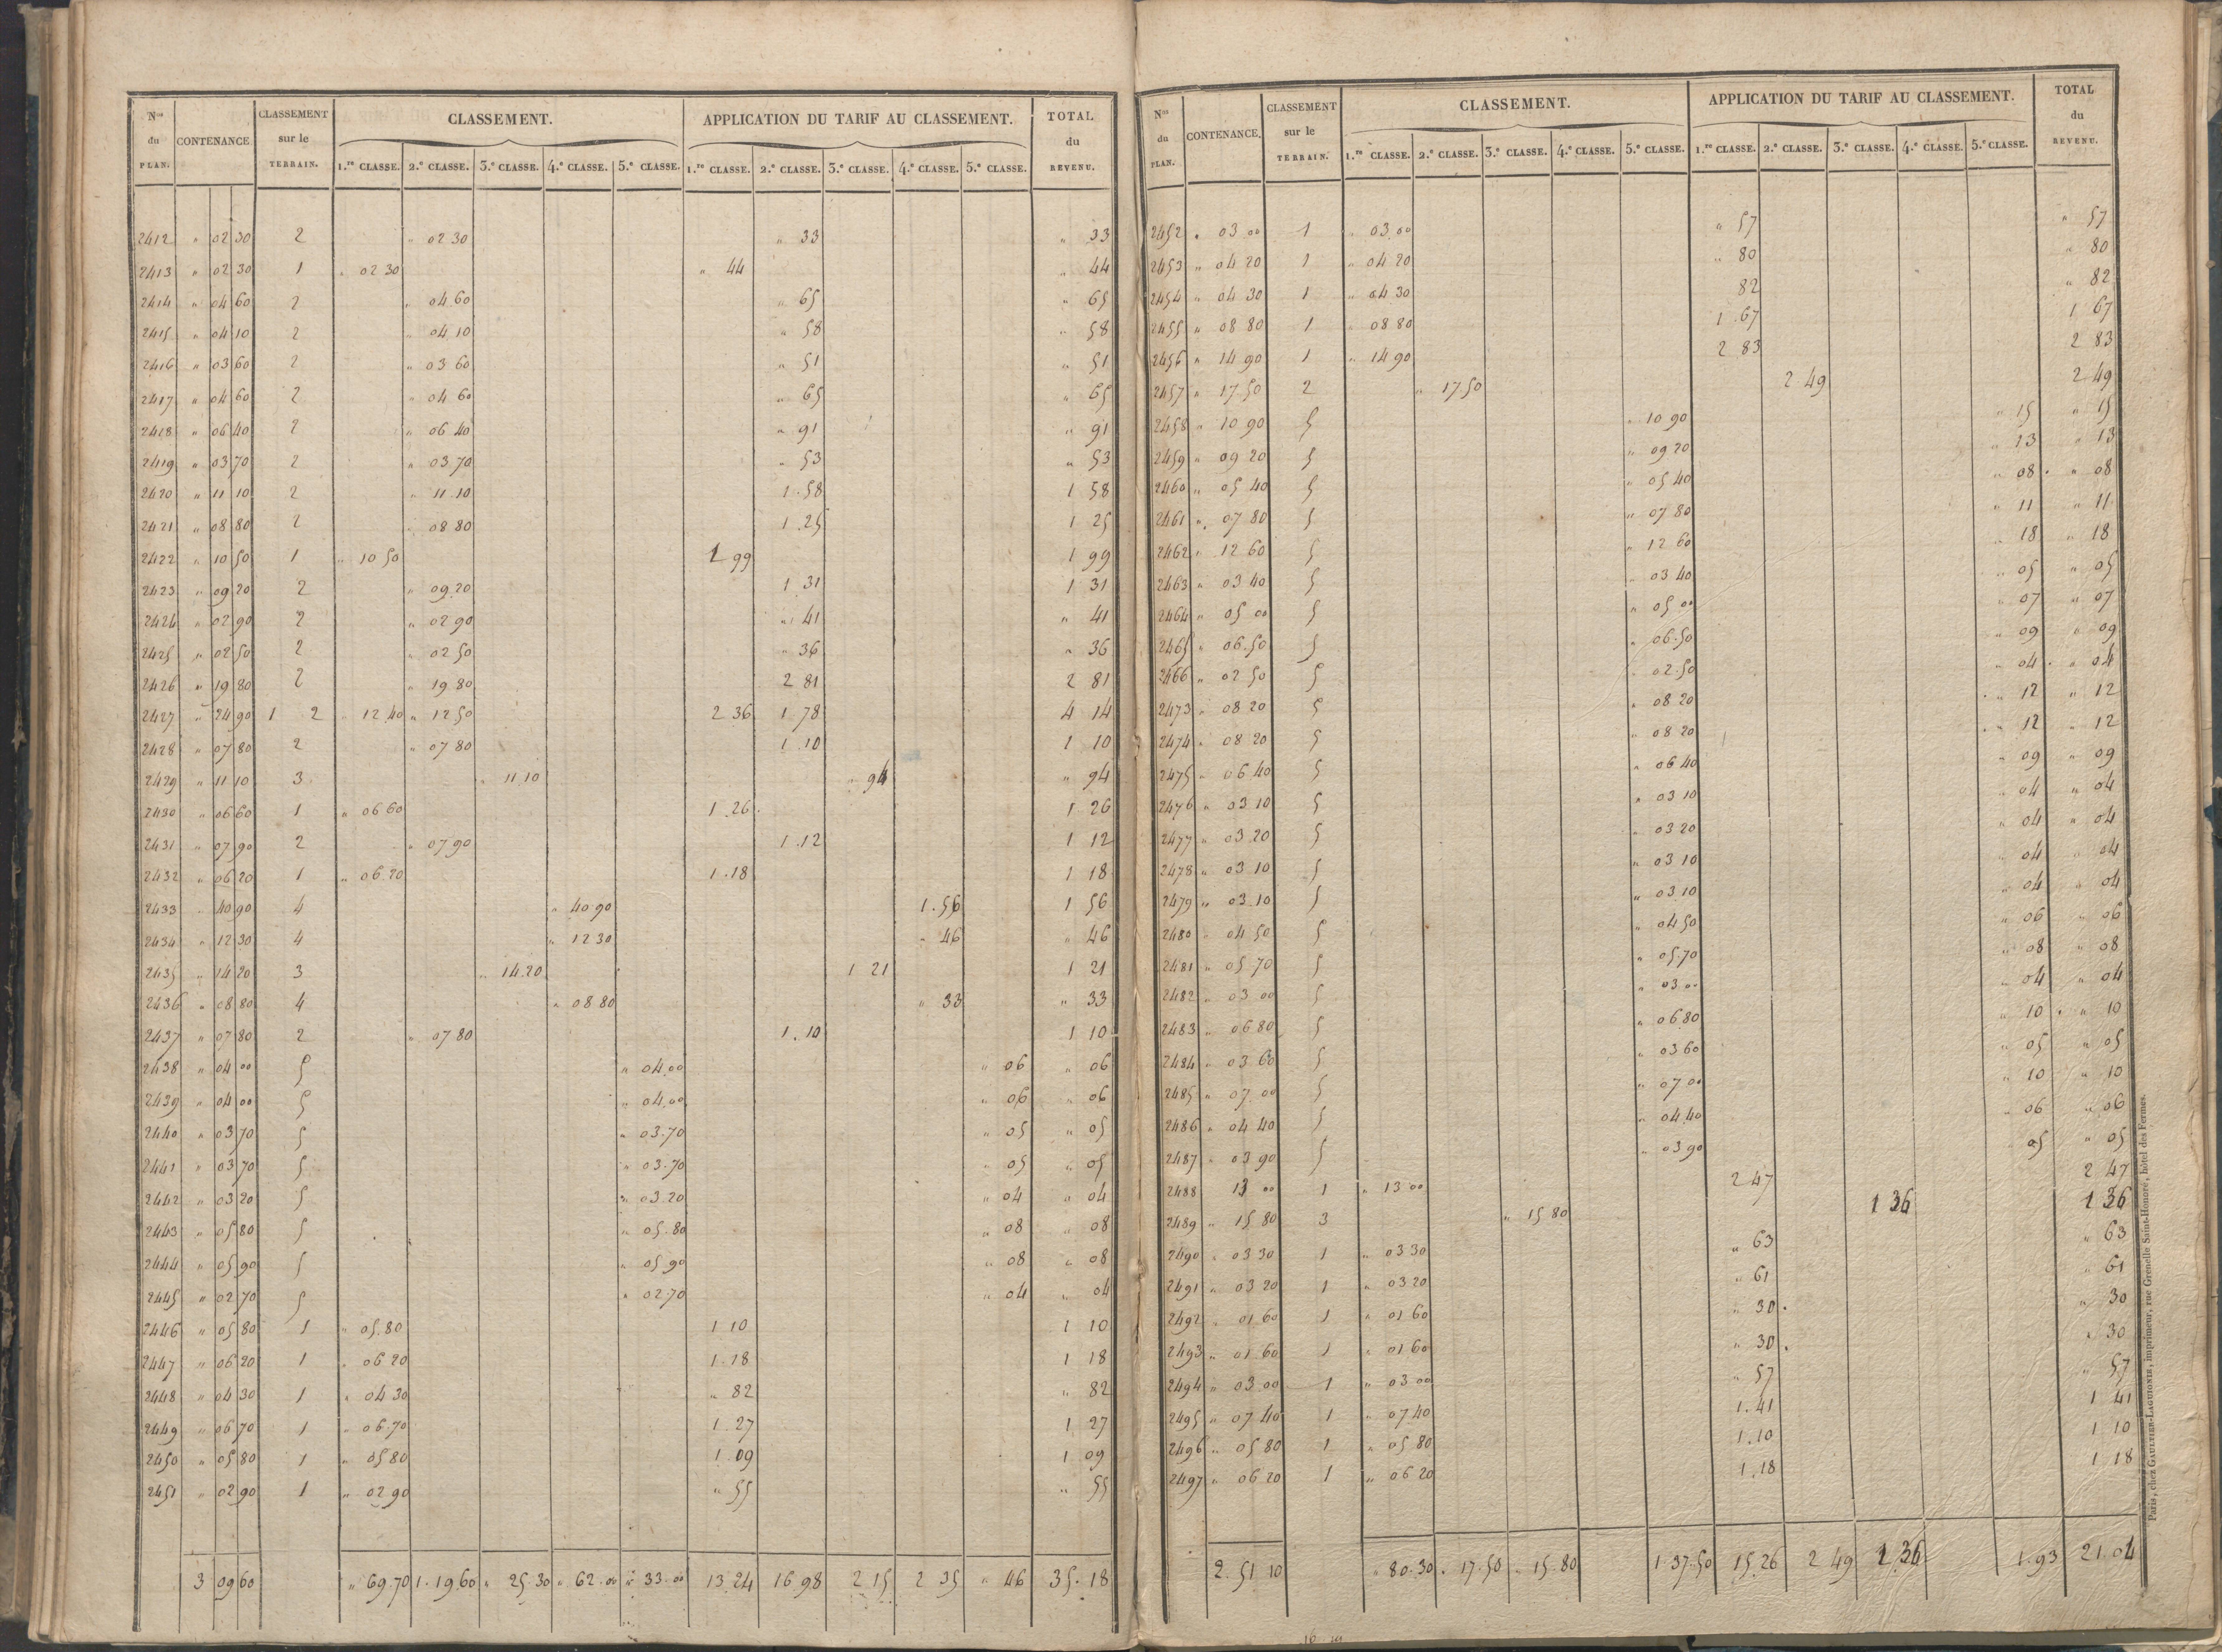 Nos du PLAN. CONTENANCE. CLASSEMENT sur le TERRAIN. CLASSEMENT. APPLICATION DU TARIF AU CLASSEMENT. TOTAL du REVENU.
1.re CLASSE. 2.e CLASSE. 3.e CLASSE. 4.e CLASSE. 5.e CLASSE. 1.re CLASSE. 2.e CLASSE. 3.e CLASSE. 4.e CLASSE. 5.e CLASSE.
2412 " 02 30 2 " 02 30 " 33 " 33
2413 " 02 30 1 " 02 30 " 44 " 44
2414 " 04 60 2 " 04 60 " 65 " 65
2415 " 04 10 2 " 04 10 " 58 " 58
2416 " 03 60 2 " 03 60 " 51 " 51
2417 " 04 60 2 " 04 60 " 65 " 65
2418 " 06 40 2 " 06 40 " 91 " 91
2419 " 03 70 2 " 03 70 " 53 " 53
2420 " 11 10 2 " 11 10 1.58 1 58
2421 " 08 80 2 " 08 80 1.25 1 25
2422 " 10 50 1 " 10 50 1 99 1 99
2423 " 09 20 2 " 09.20 1 31 1 31
2424 " 02 90 2 " 02 90 " 41 " 41
2425 " 02 50 2 " 02 50 " 36 " 36
2426 " 19 80 2 " 19 80 2 81 2 81
2427 " 24 90 1 2 " 12.40 " 12 50 2 36 1.78 4 14
2428 " 07 80 2 " 07 80 1.10 1 10
2429 " 11 10 3 " 11.10 " 94 " 94
2430 " 06 60 1 " 06 60 1.26 1 26
2431 " 07 90 2 " 07 90 1.12 1 12
2432 " 06 20 1 " 06.20 1.18 1 18
2433 " 40 90 4 " 40 90 1.56 1 56
2434 " 12 30 4 " 12 30 " 46 " 46
2435 " 14 20 3 " 14.20 1 21 1 21
2436 " 08 80 4 " 08 80 " 33 " 33
2437 " 07 80 2 " 07 80 1.10 1 10
2438 " 04 00 5 " 04.00 " 06 " 06
2439 " 04 00 5 " 04.00 " 06 " 06
2440 " 03 70 5 " 03.70 " 05 " 05
2441 " 03 70 5 " 03.70 " 05 " 05
2442 " 03 20 5 " 03.20 " 04 " 04
2443 " 05 80 5 " 05.80 " 08 " 08
2444 " 05 90 5 " 05 90 " 08 " 08
2445 " 02 70 5 " 02.70 " 04 " 04
2446 " 05 80 1 " 05.80 1 10 1 10
2447 " 06 20 1 " 06 20 1.18 1 18
2448 " 04 30 1 " 04 30 " 82 " 82
2449 " 06 70 1 " 06.70 1.27 1 27
2450 " 05 80 1 " 05 80 1.09 1 09
2451 " 02 90 1 " 02 90 " 55 " 55
3 09 60 " 69.70 1.19.60 " 25.30 " 62.00 " 33.00 13.24 16 98 2.15 2 35 " 46 35.18
Nos du PLAN. CONTENANCE. CLASSEMENT sur le TERRAIN. CLASSEMENT. APPLICATION DU TARIF AU CLASSEMENT. TOTAL du REVENU.
1.re CLASSE. 2.e CLASSE. 3.e CLASSE. 4.e CLASSE. 5.e CLASSE. 1.re CLASSE. 2.e CLASSE. 3.e CLASSE. 4.e CLASSE. 5.e CLASSE.
2452 " 03 00 1 " 03.00 " 57 " 57
2453 " 04 20 1 " 04 20 " 80 " 80
2454 " 04 30 1 " 04 30 82 " 82
2455 " 08 80 1 " 08 80 1.67 1 67
2456 " 14 90 1 " 14 90 2 83 2 83
2457 " 17.50 2 " 17.50 2 49 2 49
2458 " 10 90 5 " 10 90 " 15 " 15
2459 " 09 20 5 " 09 20 " 13 " 13
2460 " 05 40 5 " 05 40 " 08 " 08
2461 " 07 80 5 " 07 80 " 11 " 11
2462 " 12 60 5 " 12 60 " 18 " 18
2463 " 03 40 5 " 03 40 " 05 " 05
2464 " 05 00 5 " 05 00 " 07 " 07
2465 " 06.50 5 " 06.50 " 09 " 09
2466 " 02 50 5 " 02.50 " 04 " 04
2473 " 08 20 5 " 08 20 " 12 " 12
2474 " 08 20 5 " 08 20 " 12 " 12
2475 " 06 40 5 " 06 40 " 09 " 09
2476 " 03 10 5 " 03 10 " 04 " 04
2477 " 03 20 5 " 03 20 " 04 " 04
2478 " 03 10 5 " 03 10 " 04 " 04
2479 " 03.10 5 " 03 10 " 04 " 04
2480 " 04 50 5 " 04 50 " 06 " 06
2481 " 05 70 5 " 05.70 " 08 " 08
2482 " 03 00 5 " 03 00 " 04 " 04
2483 " 06 80 5 " 06 80 " 10 " 10
2484 " 03 60 5 " 03 60 " 05 " 05
2485 " 07 00 5 " 07 00 " 10 " 10
2486 " 04 40 5 " 04.40 " 06 " 06
2487 " 03 90 5 " 03 90 05 " 05
2488 13 00 1 " 13 00 2 47 2 47
2489 " 15 80 3 " 15 80 1 36 1 36
2490 " 03 30 1 " 03 30 " 63 " 63
2491 " 03 20 1 " 03 20 " 61 " 61
2492 " 01 60 1 " 01 60 " 30 " 30
2493 " 01 60 1 " 01 60 " 30 " 30
2494 " 03 00 1 " 03 00 " 57 " 57
2495 " 07 40 1 " 07 40 1.41 1 41
2496 " 05 80 1 " 05 80 1.10 1 10
2497 " 06 20 1 " 06 20 1.18 1 18
2.51 10 " 80.30 " 17.50 " 15.80 1 37.50 15.26 2 49 1 36 1.93 21.04
Paris, chez GAULTIER-LAGUIONIE, imprimeur, rue Grenelle Saint-Honoré, hôtel des Fermes.